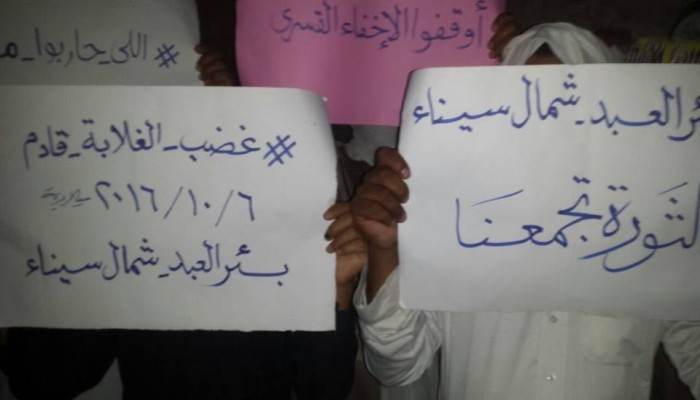 #اللي_حاربوا_م
أوقفوا الإخفاء القسري
#غضب_الغلابة_قادم
٢٠١٦/١٠/٦
بئر العبد_شمال سيناء
ئر العبد_شمال سيناء
لثورة تجمعنا